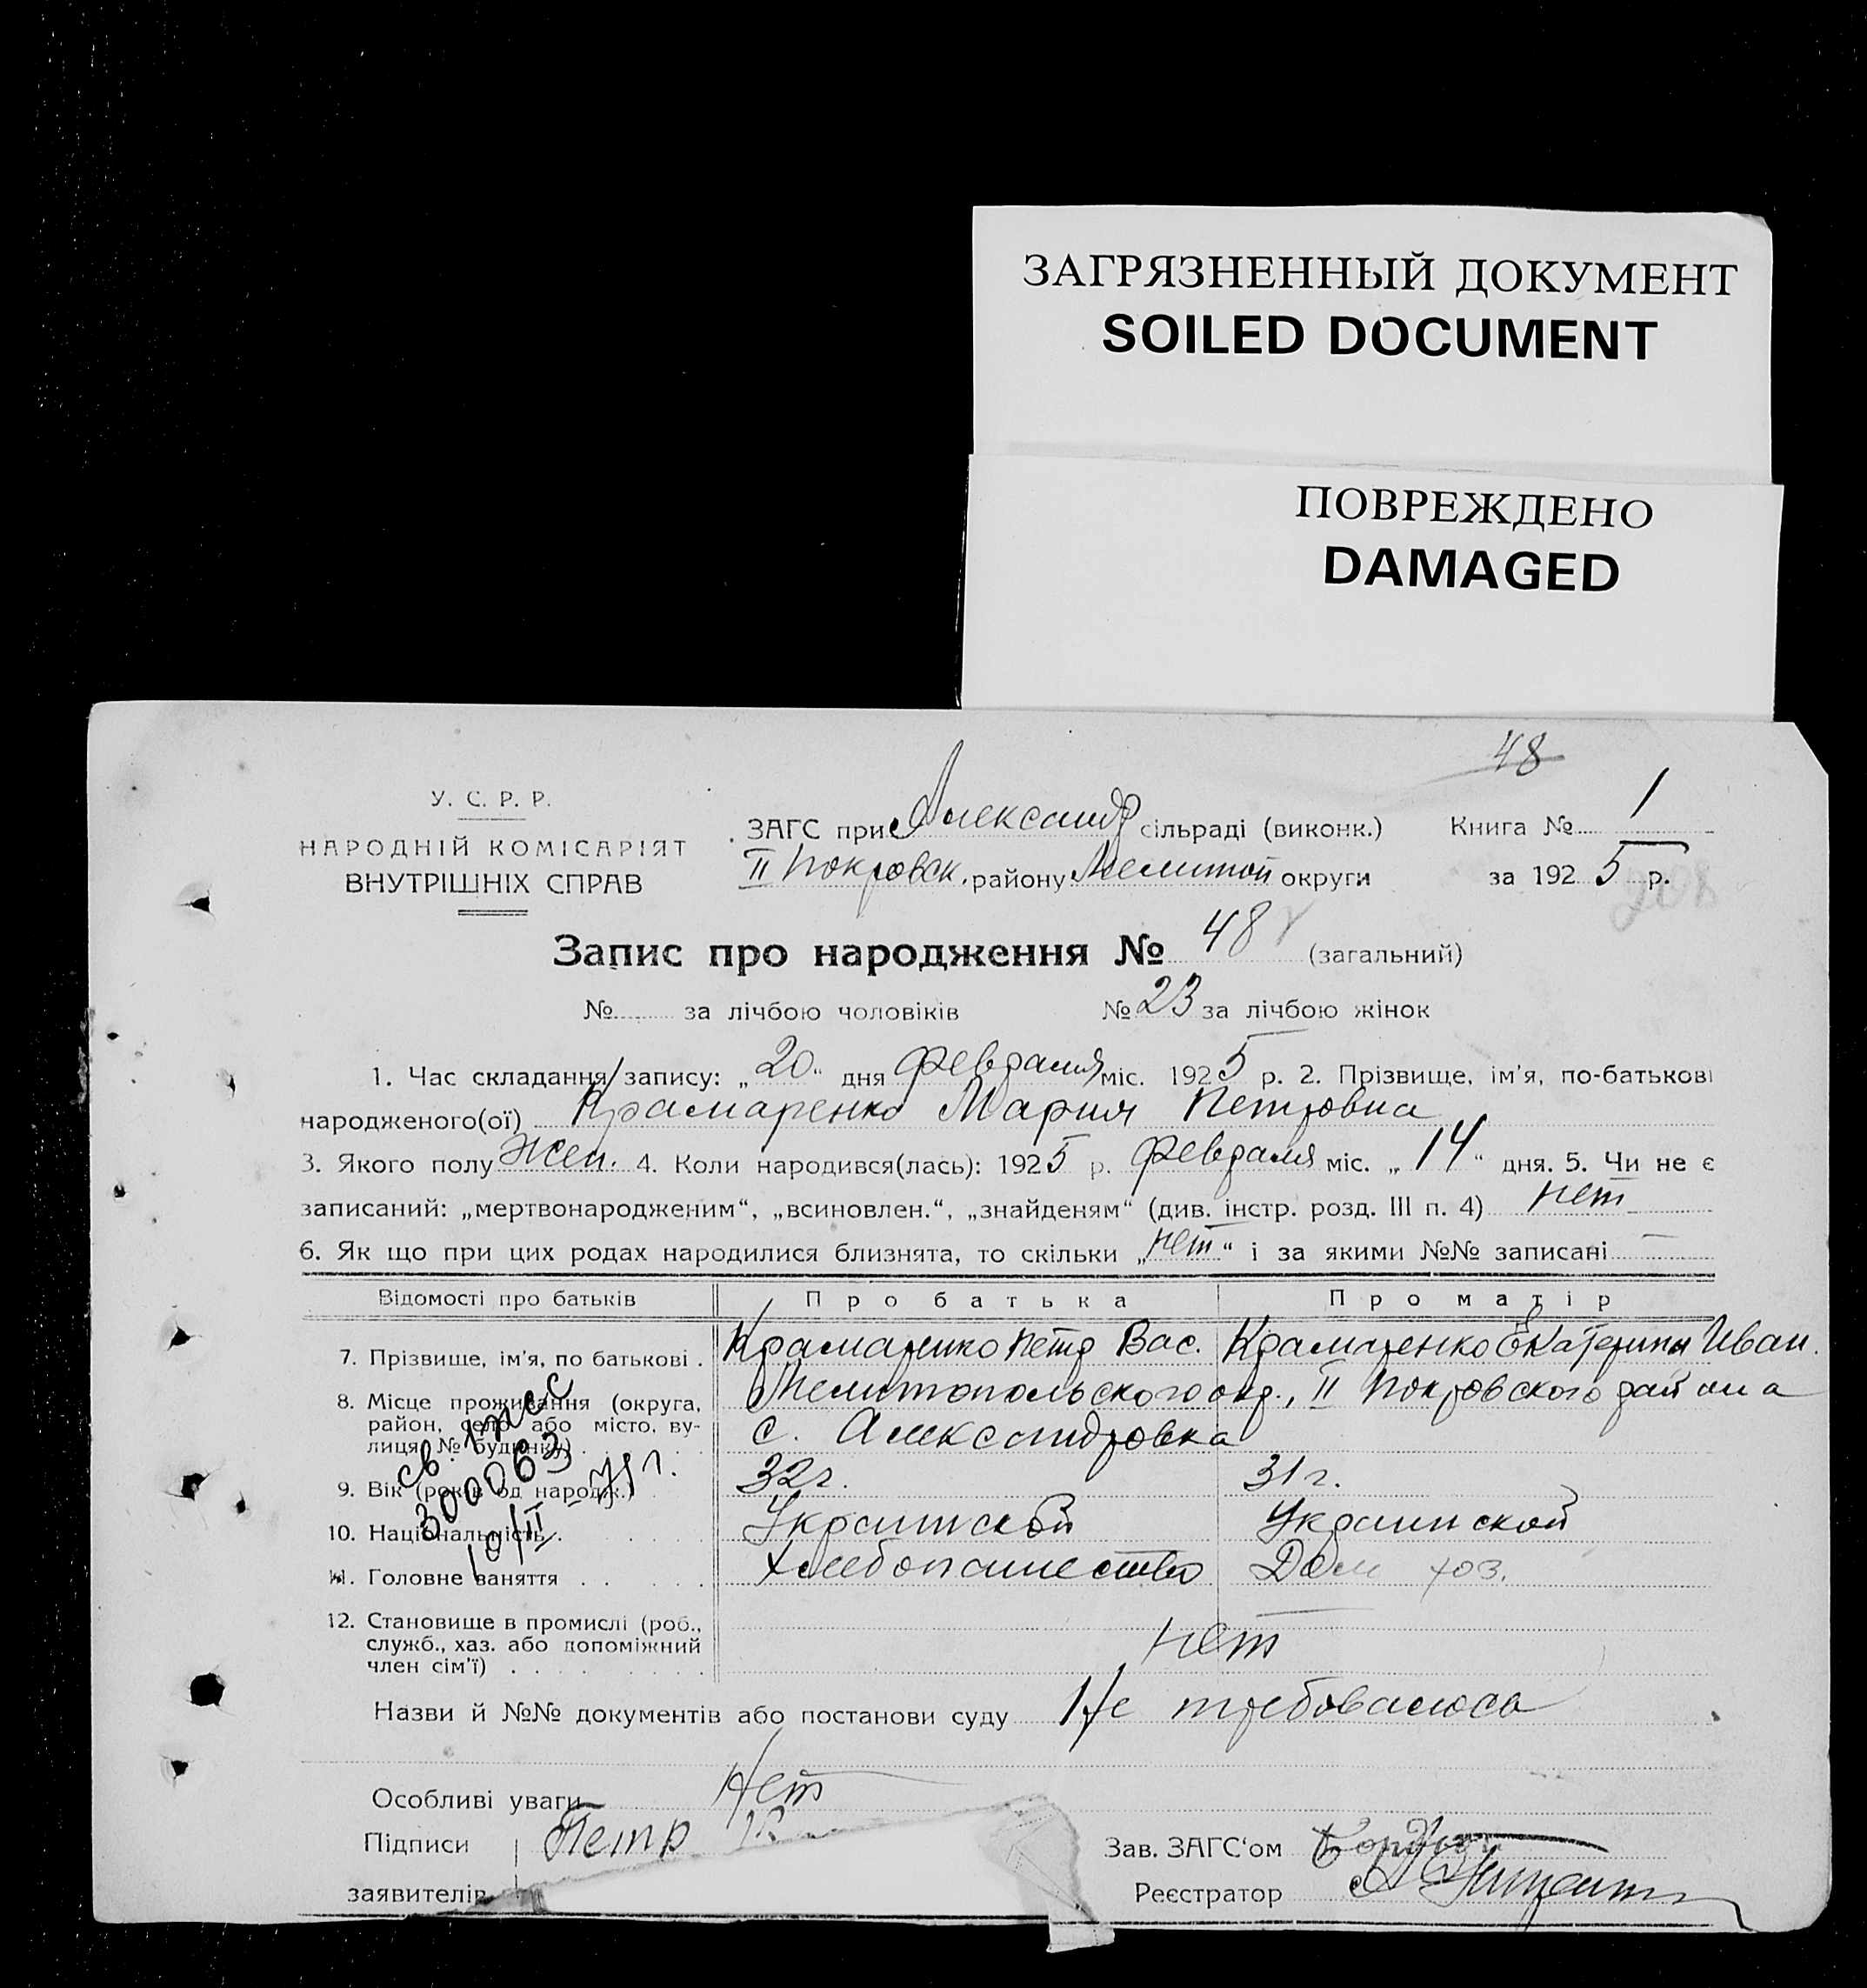 ЗАГРЯЗНЕННЫЙ ДОКУМЕНТ
SOILED DOCUMENT
ПОВРЕЖДЕНО
DAMAGED
48
У. С. Р. Р.
НАРОДНІЙ КОМІСАРІЯТ
ВНУТРІШНІХ СПРАВ
ЗАГС при Александр сільраді (виконк.) Книга № 1
II Покровск. району Мелитой округи за 1925 р.
208
Запис про народження № 48 (загальний)
№ за лічбою чоловіків № 23 за лічбою жінок
1. Час складання запису: „20“ дня февраля міс. 1925 р. 2. Прізвище, ім'я, по-батькові
народженого(ої) Крамаренко Мария Петровна
3. Якого полу жен. 4. Коли народився(лась): 1925 р. февраля міс. „14“ дня. 5. Чи не є
записаний: „мертвонародженим“, „всиновлен.“, „знайденям“ (див. інстр. розд. III п. 4) нет
6. Як що при цих родах народилися близнята, то скільки „нет“ і за якими №№ записані —
Відомості про батьків Про батька Про матір
7. Прізвище, ім'я, по батькові . Крамаренко Петр Вас. Крамаренко Екатерина Иван.
8. Місце проживання (округа, Мелитопольского окр., II Покровского района
район, село або місто, ву- с. Александровка
лиця, № будинку)
9. Вік (років од народж.) 32 г. 31 г.
10. Національність Украинской Украинской
11. Головне заняття Хлебопашество Дом хоз.
св. 300063
10/II-
12. Становище в промислі (роб., нет
служб., хаз. або допоміжний
член сім'ї)
Назви й №№ документів або постанови суду Не требовалось
Особливі уваги Нет
Підписи Петр Зав. ЗАГС'ом
заявителів Реєстратор